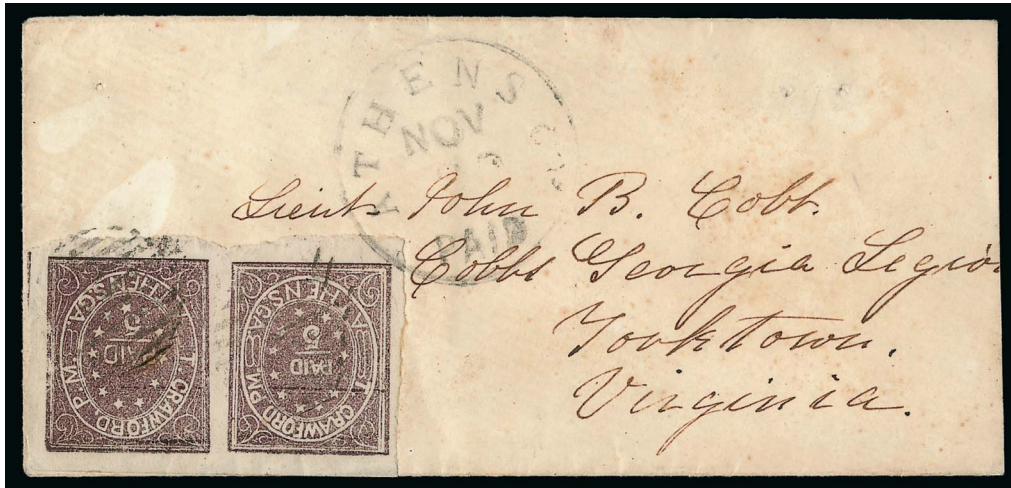 ATHENS GA.
NOV
PAID
Lieut John B. Cobb.
Cobbs Georgia Legion
Yorktown.
Virginia.
ATHENS.GA.
PAID
5
T. CRAWFORD P.M.
ATHENS.GA.
PAID
5
T. CRAWFORD P.M.